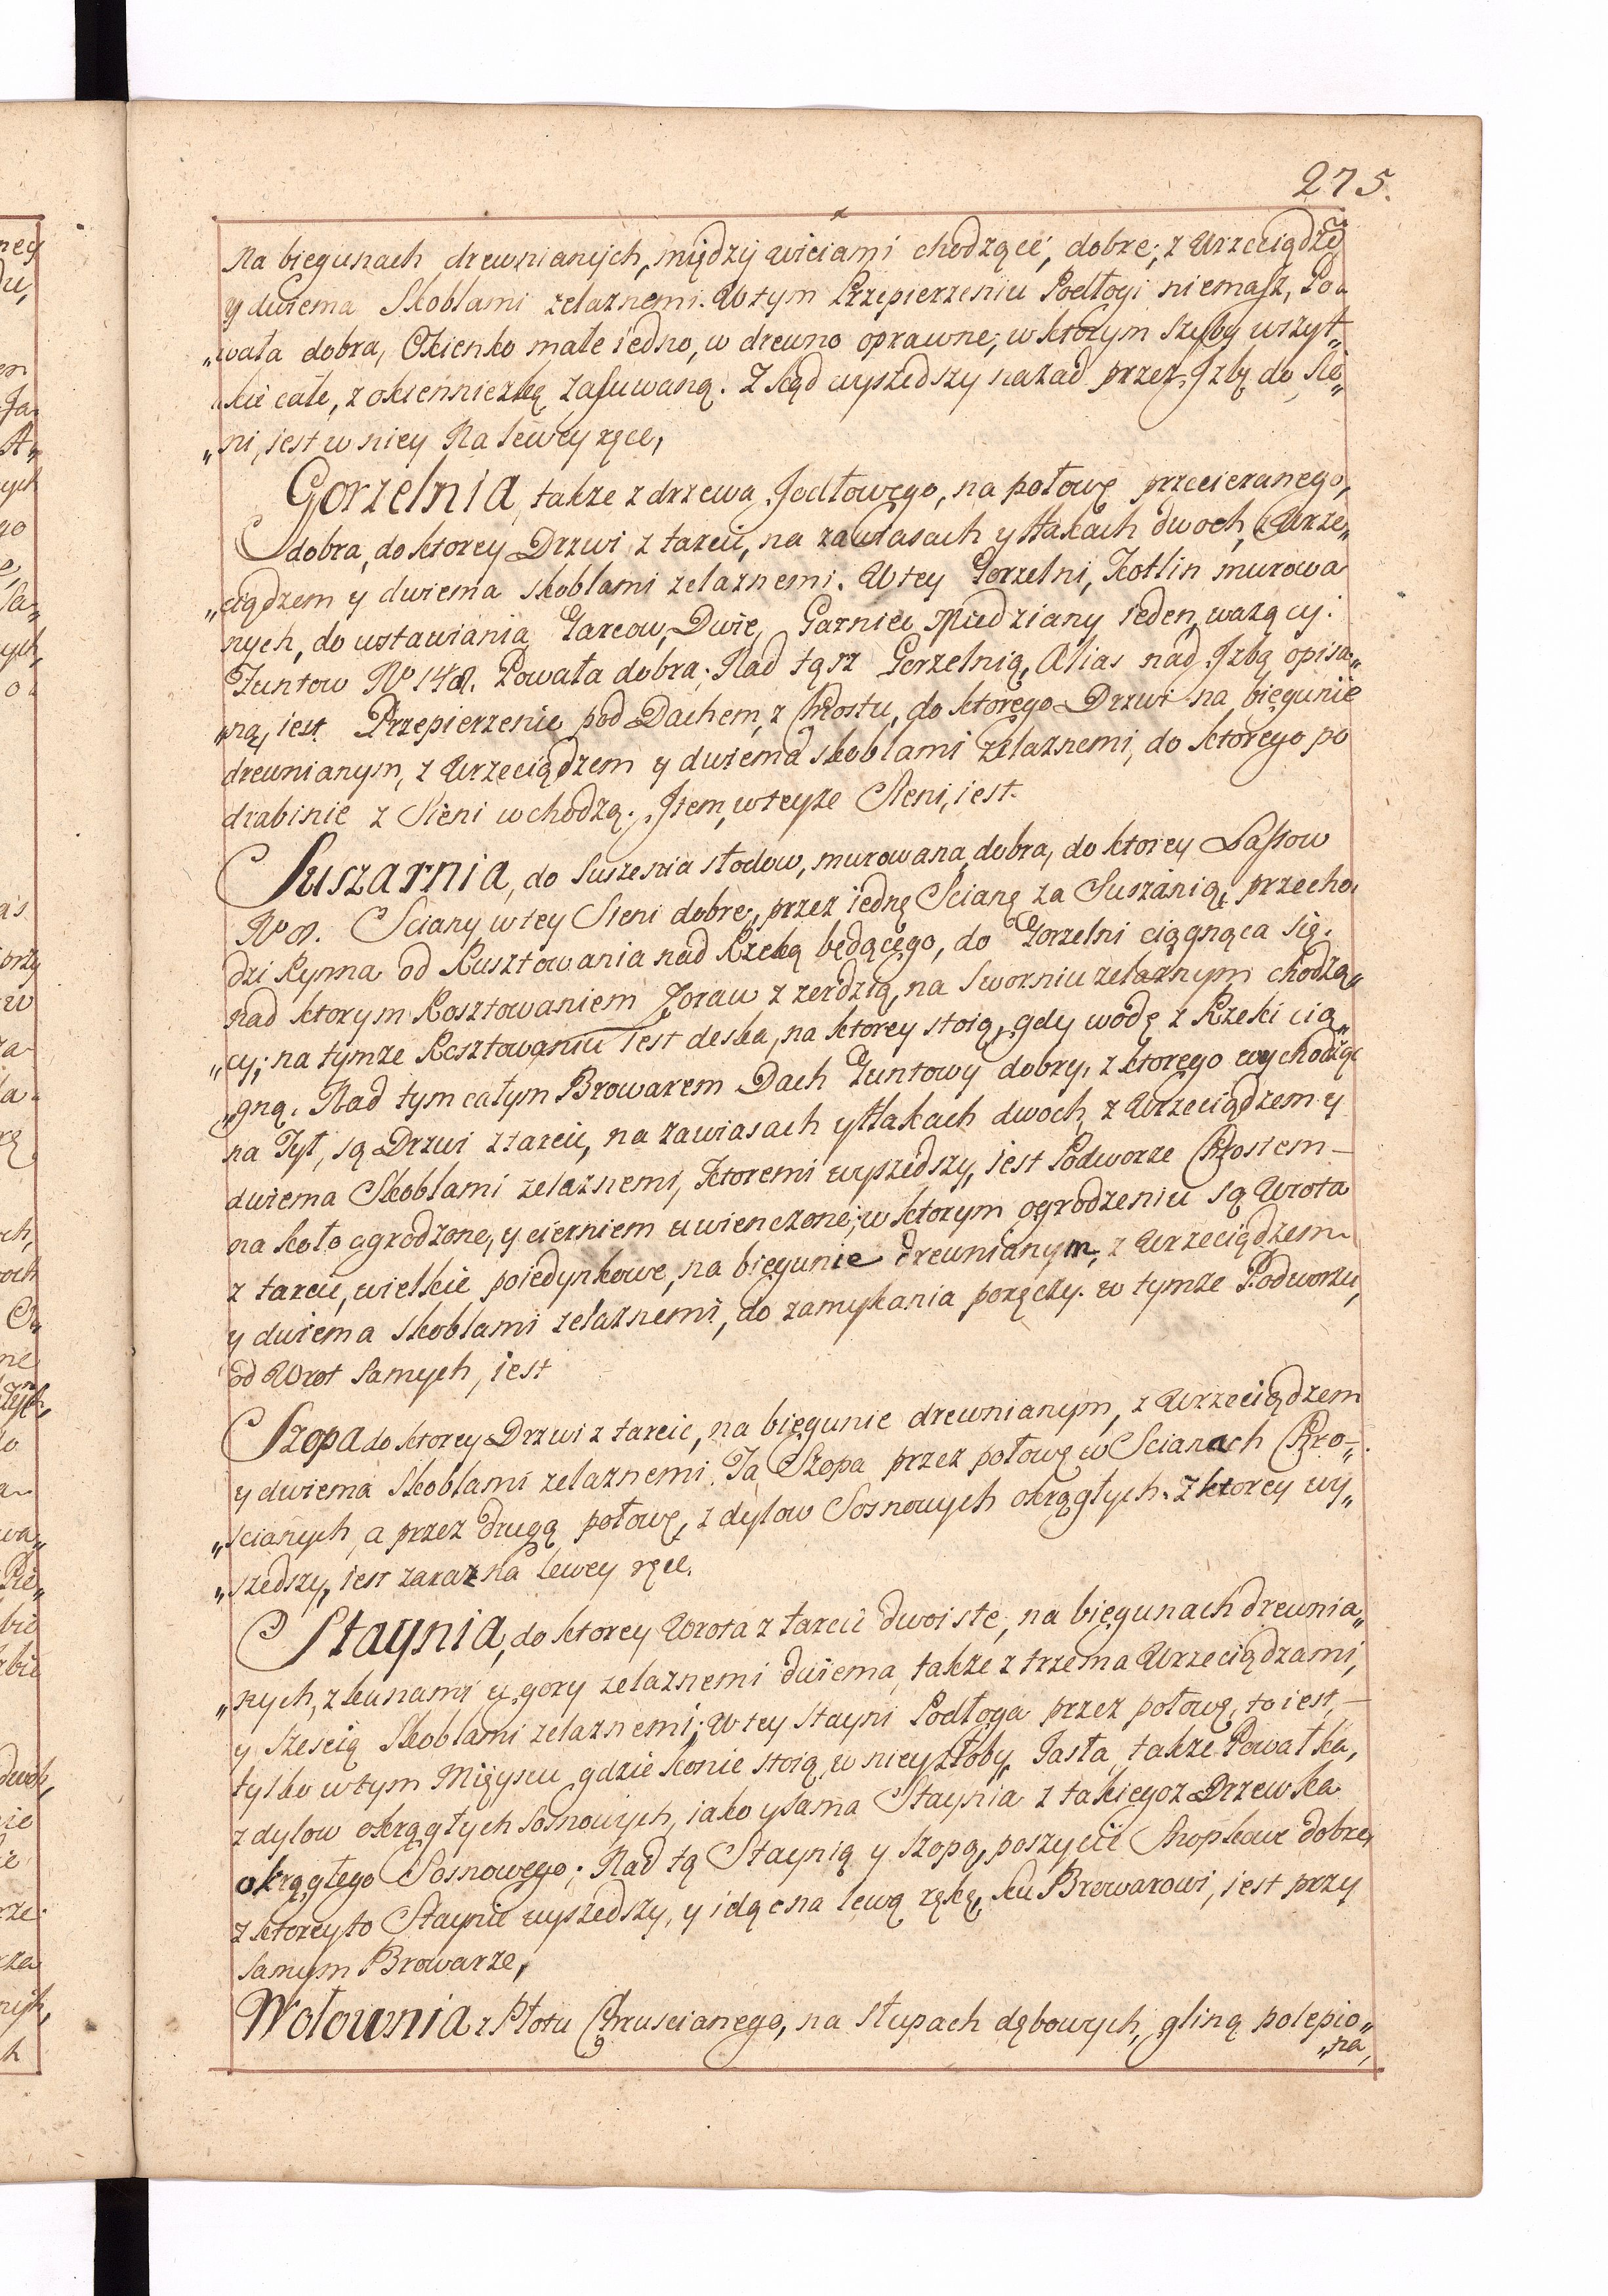 275.
Na biegunach drewnianych, między wiciami chodzące, dobre; z Wrzeciądzē
y dwiema Skoblami zelaznemi. W tym Przepierzeniu Podłogi niemasz, Po„
„wała dobra, Okienko małe iedno, w drewno oprawne; w ktorym szyby wszyt„
„kie całe, z okienniczką zasuwaną. Z kąd wyszedszy nazad przez Jzbę do Sie„
„ni, iest w niey Na lewey ręce,
Gorzelnia, także z drzewa Jodłowego, na połowę przecieranego,
dobra, do ktorey Drzwi z tarcic, na zawiasach y Hakach dwoch, z Wrze„
„ciądzem y dwiema skoblami zelaznemi. W tey Gorzelni, Kotlin murowa
nych, do wstawiania Garcow, Dwie, Garniec Miedziany ieden, wazący:
Funtow No 148. Powała dobra; Nad tąsz Gorzelnią, Alias nad Jzbą opisa„
„ną, iest Przepierzenie pod Dachem, z Chrostu, do ktorego Drzwi na biegunie
drewnianym, z Wrzeciądzem y dwiema skoblami zelaznemi, do ktorego po
drabinie z Sieni wchodzą. Jtem, w teyze Sieni, iest.
Suszarnia, do Suszenia słodow, murowana, dobra, do ktorey Lassow
No 8. Sciany w tey Sieni dobre, przez iednę Scianę za Suszánią, przecho„
dzi Rynna od Rusztowania nad Rzeką będącego, do Gorzelni ciągnąca się.
nad ktorym Rosztowaniem Zoraw z zerdzią, na Sworzniu zelaznym chodzą„
„cy; na tymze Rosztowaniu iest deska, na ktorey stoią, gdy wodę z Rzeki cią„
„gną. Nad tym całym Browarem Dach Guntowy dobry, z ktorego wychodząc
na Tył, są Drzwi z tarcic, na zawiasach y Hakach dwoch, z Wrzeciądzem y
dwiema Skoblami zelaznemi, Ktoremi wyszedszy, iest Podworze Chrostem -
na koło ogrodzone, y cierniem uwienczone; w ktorym ogrodzeniu są Wrota
z tarcic, wielkie poiedynkowe, na biegunie drewnianym, z Wrzeciądzem
y dwiema skoblami zelaznemi, do zamykania poręczy. w tymze Podworzu,
od Wrot samych, iest
Szopa do ktorey Drzwi z tarcic, na biegunie drewnianym, z Wrzeciądzem
y dwiema Skoblami zelaznemi. Ta Szopa przez połowę w Scianach Chro-
„scianych, a przez drugą połowę, z dylow Sosnowych okrągłych. Z ktorey wy„
„szedszy, iest zaraz na lewey ręce.
Staynia, do ktorey Wrota z tarcic dwoiste, na biegunach drewnia„
„nych, z kunami z gory zelaznemi dwiema, także z trzema Wrzeciądzami,
y sześcią Skoblami zelaznemi; W tey Stayni Podłoga przez połowę, to iest, -
tylko w tym Mieyscu gdzie konie stoią, w niey Złoby, Jasła, także Powałka,
z dylow okrągłych sosnowych, iako y sama Staynia z takiegoz Drzewka
okrągłego Sosnowego; Nad tą Staynią y szopą, poszycie Snopkowe dobre,
z ktoreyto Staynie wyszedszy, y idąc na lewą rękę, ku Browarowi, iest przy
samym Browarze,
Wołownia z Płotu Chruscianego, na słupach dębowych, gliną polepio„
„na,